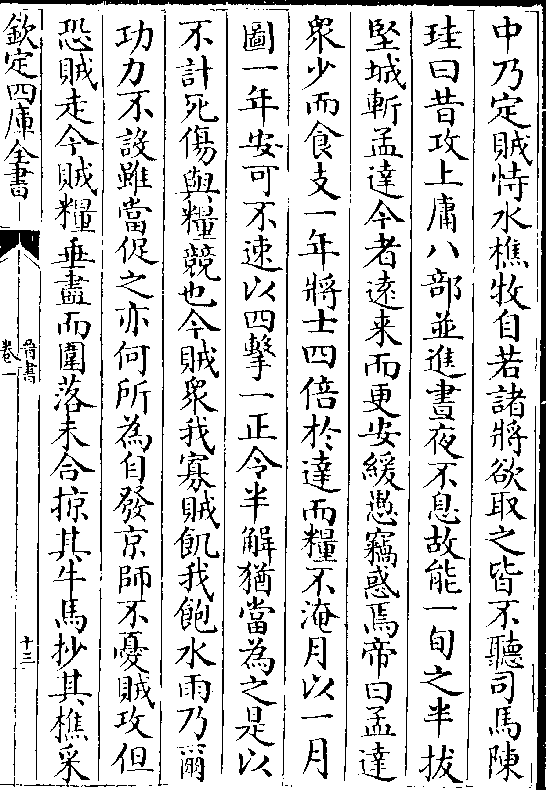 中乃定賊恃水樵牧自若諸將欲取之皆不聽司馬陳
珪曰昔攻上庸八部並進晝夜不息故能一旬之半拔
堅城斬孟達今者逺来而更安緩愚竊惑焉帝曰孟達
衆少而食支一年將士四倍於達而糧不淹月以一月
圖一年安可不速以四擊一正令半解猶當為之是以
不計死傷與糧競也今賊衆我寡賊飢我飽水雨乃爾
功力不設雖當促之亦何所為自發京師不憂賊攻但
恐賊走今賊糧垂盡而圍落未合掠其牛馬抄其樵采
欽定四庫全書
晉書
卷一
十三